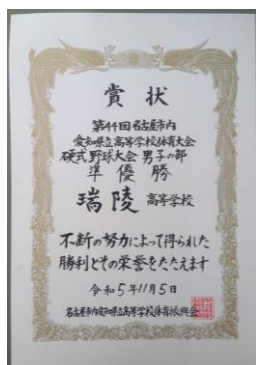 賞状
第44回名古屋市内
愛知県立高等学校体育大会
硬式野球大会 男子の部
準優勝
瑞陵 高等学校
不断の努力によって得られた
勝利とその栄誉をたたえます
令和5年11月5日
名古屋市内愛知県立高等学校体育振興会